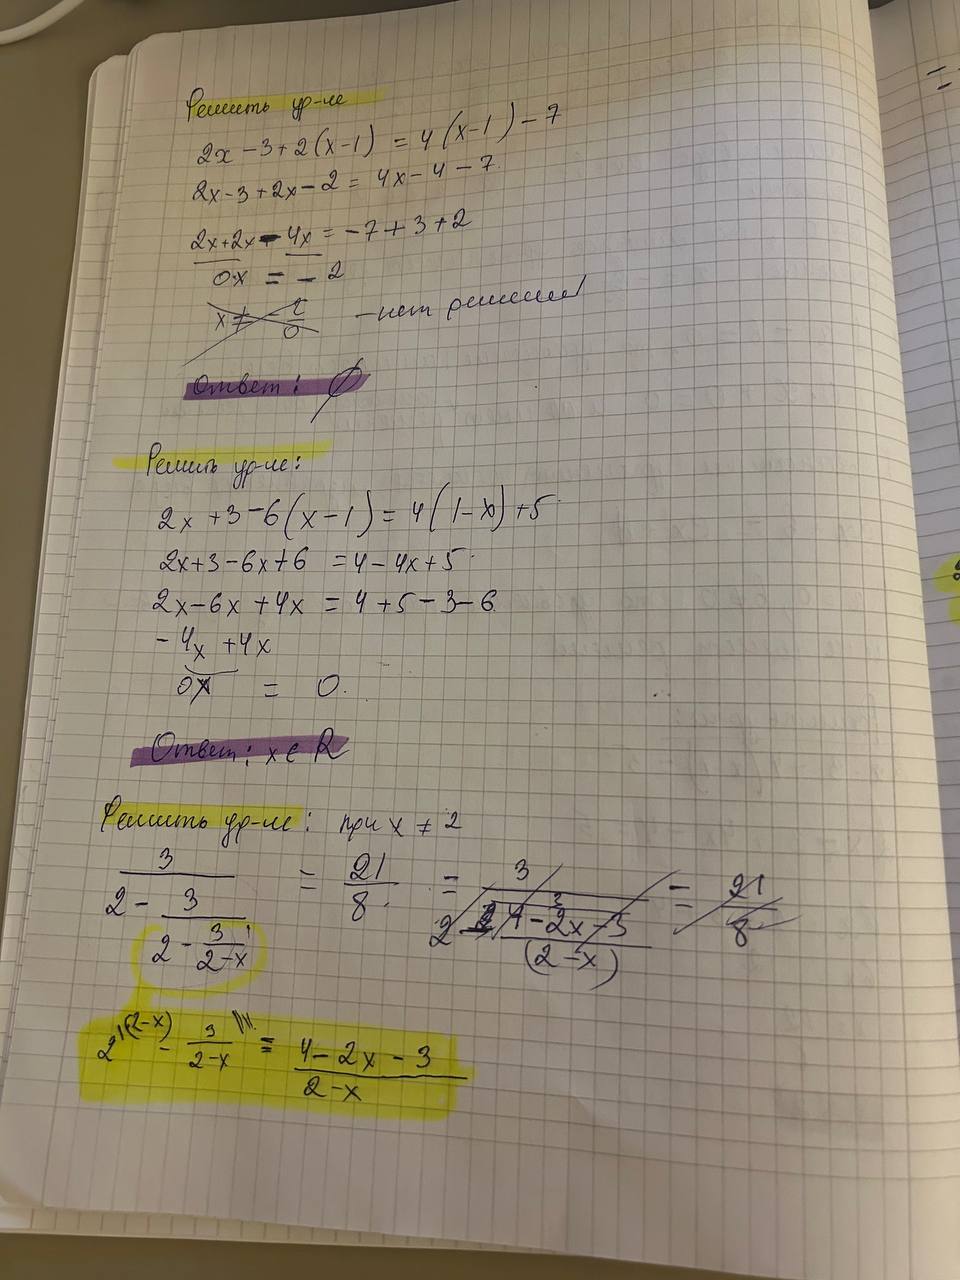 Решить ур-ие
2x - 3 + 2(x-1) = 4(x-1) - 7
2x - 3 + 2x - 2 = 4x - 4 - 7
2x + 2x - 4x = -7 + 3 + 2
0x = -2
x ≠ 2/0 - нет решений
Ответ: ∅
Решить ур-ие:
2x + 3 - 6(x-1) = 4(1-x) + 5
2x + 3 - 6x + 6 = 4 - 4x + 5
2x - 6x + 4x = 4 + 5 - 3 - 6
- 4x + 4x
0x = 0.
Ответ: x ∈ R
Решить ур-ие: при x ≠ 2
3/(2 - 3/(2 - 3/(2-x))) = 21/8 = 3/(2 - (4-2x-3)/(2-x)) = 21/8
2^{1(2-x)} - 3/(2-x) = (4 - 2x - 3)/(2-x)